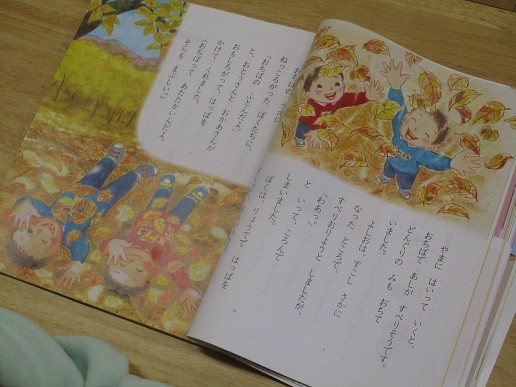 やまに はいって いくと、
おちばで あしが すべりそうです。
どんぐりの みも おちて
いました。
よしおは すこし さかに
なった ところで、
すべりおりようと しましたが、
「わあっ。」
と いって、ころんで
しまいました。
ぼくは、りょうてで はっぱを
ねっころがった ぼくたちに、
「おちばの ふとんだよ。」
と、おとうさんと おかあさんが
おもしろがって、はっぱを
かけて くれました。
(おちばって、あたたかいんだよ。
そらも まぶしい。)